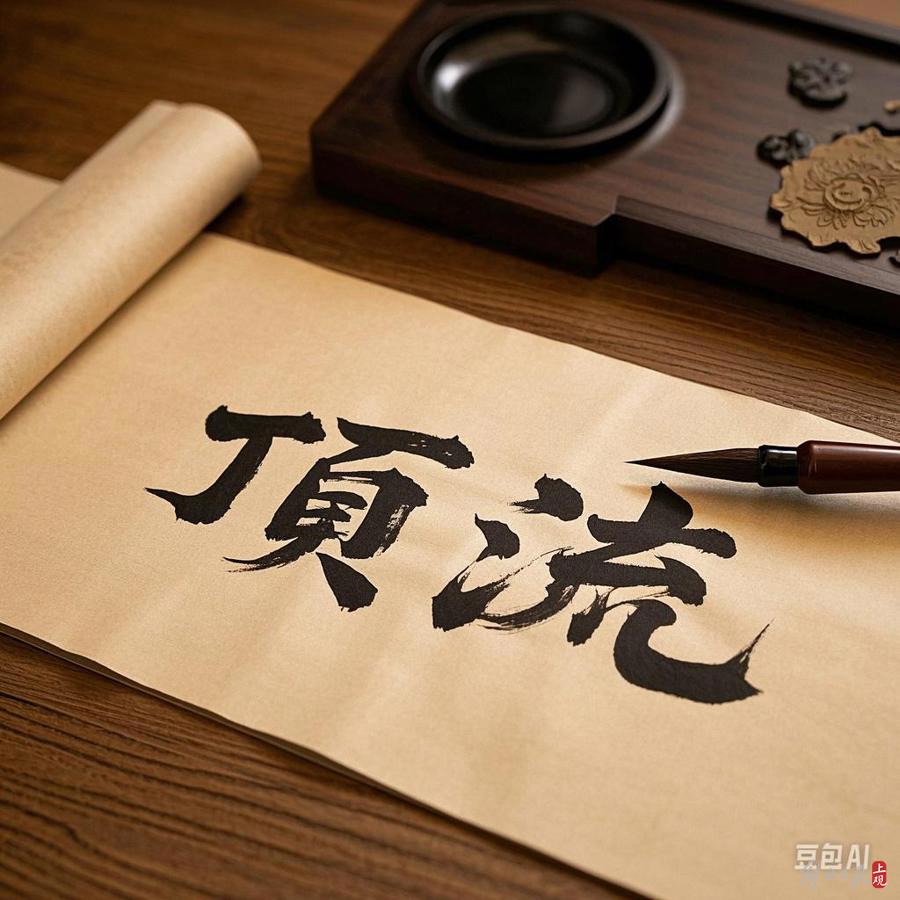 頂流
豆包AI
上观